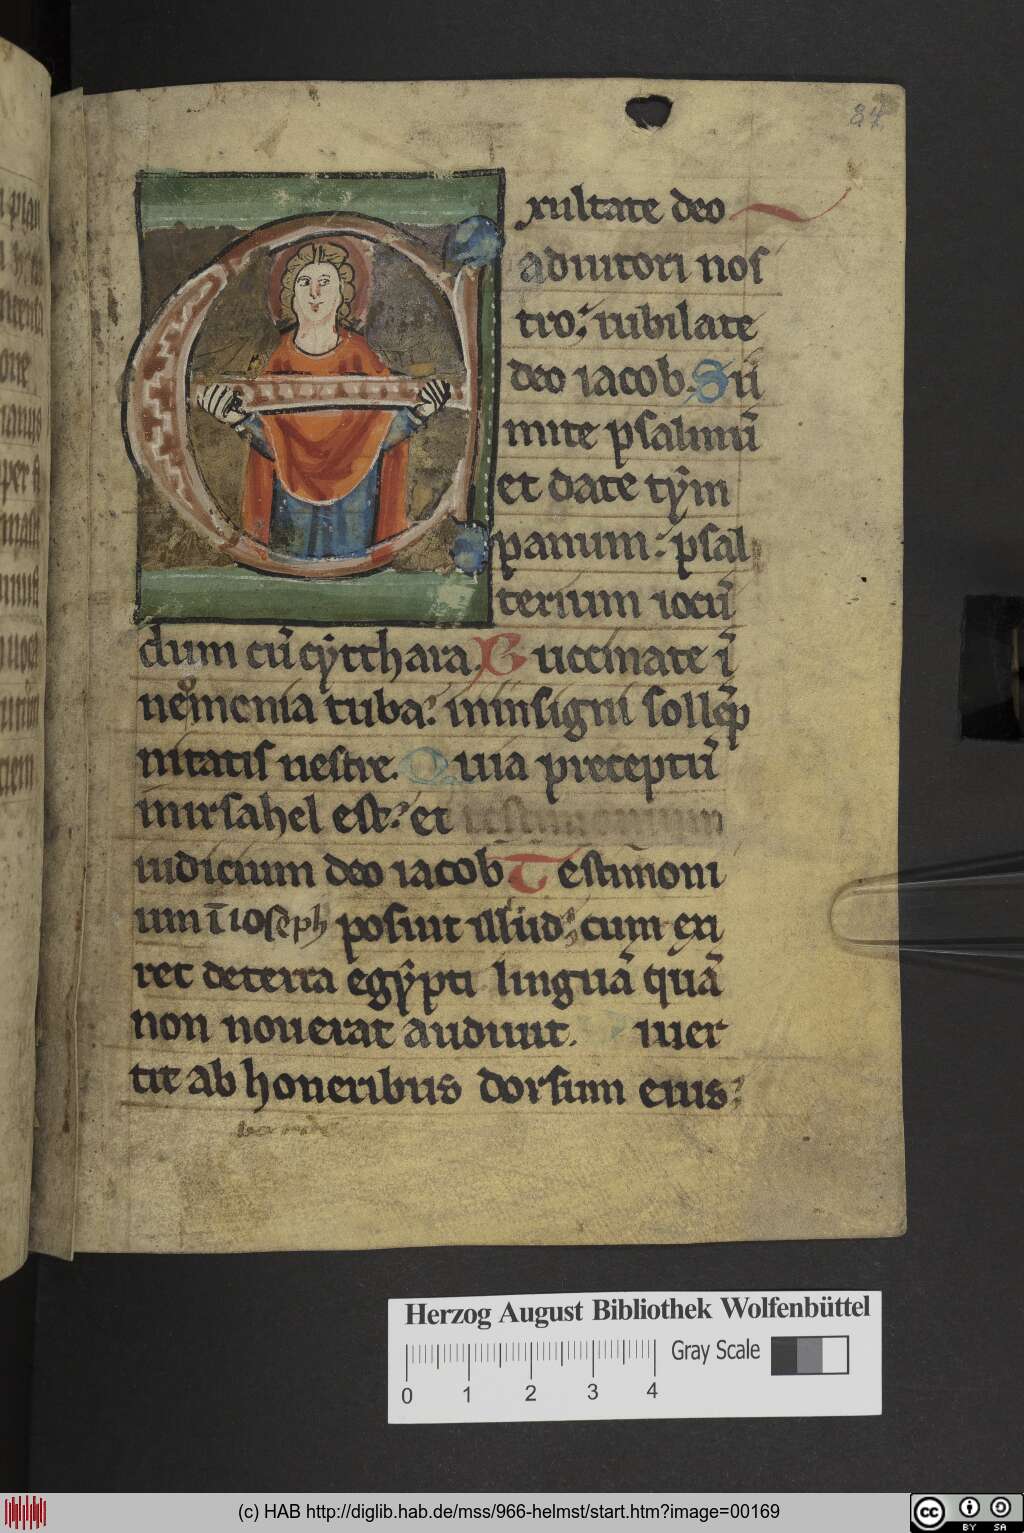 84
Exultate deo
adiutori nos
tro: iubilate
deo iacob. Sū
mite psalmū
et date tym̄
panum: psal
terium iocū
dum cū cytthara. Buccinate ī
neomenia tuba: in insigni sollēp
nitatis uestre. Quia preceptū
inirsahel est: et testimonium
iudicium deo iacob. Testimoni
um ī ioseph posuit illud: cum exi
ret deterra egypti linguā quā
non nouerat audiuit. iuer
tit ab honeribus dorsum eius:
Herzog August Bibliothek Wolfenbüttel
Gray Scale
0 1 2 3 4
(c) HAB http://diglib.hab.de/mss/966-helmst/start.htm?image=00169
cc BY SA